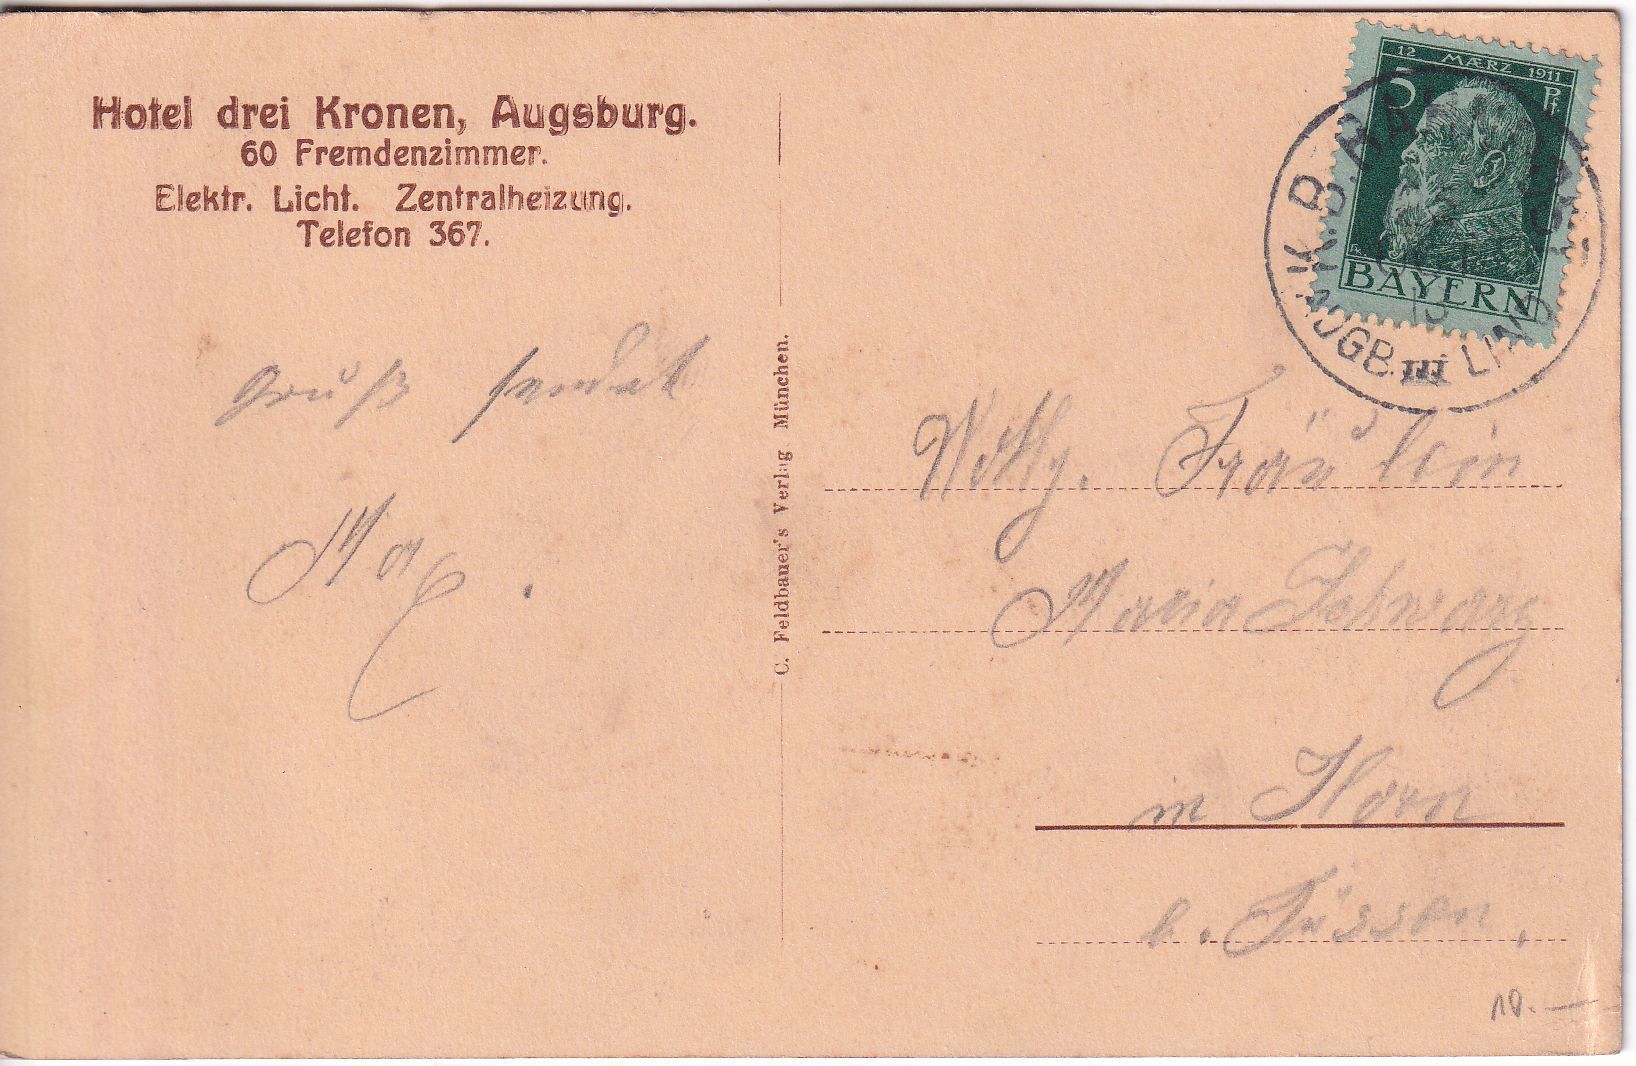 Hotel drei Kronen, Augsburg.
60 Fremdenzimmer.
Elektr. Licht. Zentralheizung.
Telefon 367.
Gruß sendet
Max.
C. Feldbauer's Verlag München.
12 MÆRZ 1911
5 Pf
BAYERN
K.B.BAHNPOST
AUGB. III LIND
Wohlg. Fräulein
Maria Schwarz
in Horn
b. Füssen.
10.—